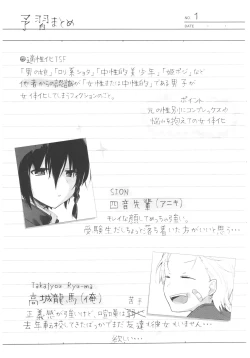 予習まとめ
NO. 1
DATE
●適性化TSF
「男の娘」「ロリ系ショタ」「中性的な美少年」「姫ポジ」など
他者からの認識が「女性または中性的」である男子が
女体化してしまうフィクションのこと。
ポイント
元の性別にコンプレックスや
悩みを抱えての女体化
SION
四音先輩(アニキ)
キレイな顔してめっちゃ強い。
受験生だしちょっと落ち着いた方がいいと思う…
Takajyou Ryu-ma
高城龍馬(俺)
正義感が強いけど、喧嘩は弱く
去年転校してきたばっかでまだ友達も彼女もいません…
欲しい…